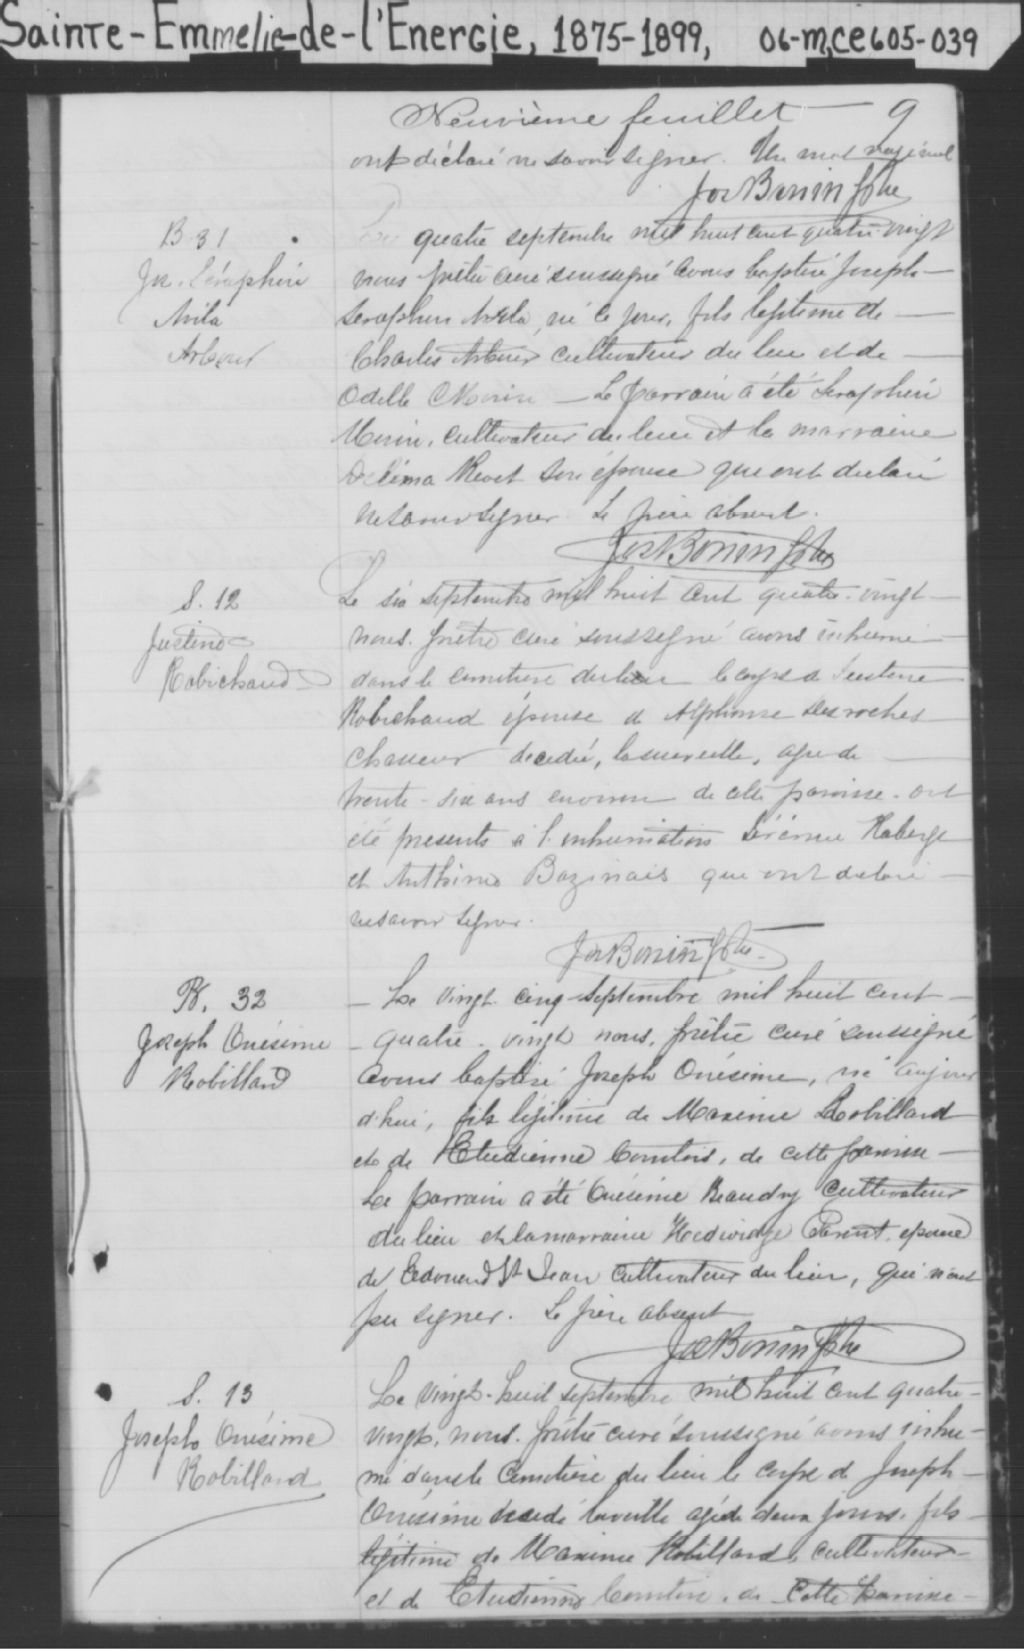 Sainte-Emmelie-de-l'Energie, 1875-1899, 06-m,ce605-039
Neuvième feuillet — 9
ont déclaré ne savoir signer. Un mot
Jos Bonin Ptre
B 31
Jos. Séraphin
Avila
Arbour
Le quatre septembre mil huit cent quatre-vingt
nous prêtre curé soussigné avons baptisé Joseph
Seraphin Avila, né ce jour, fils legitime de
Charles Arbour cultivateur du lieu et de
Odelle Morin — Le parrain a été Seraphin
Morin, cultivateur du lieu et la marraine
son épouse qui ont declaré
ne savoir signer. Le père absent.
Jos Bonin Ptre
S. 12
Justine
Robichaud
Le six septembre mil huit cent quatre-vingt
nous. prêtre curé soussigné avons inhumé
dans le cimetiere du lieu le corps de Justine
Robichaud épouse de Alphonse Desroches
décédée, la veille, agée de
trente-six ans environ de cette paroisse. ont
été presents à l'inhumation Roberge
et Anthime Bazinais qui ont declaré
ne savoir signer.
Jos Bonin Ptre
B. 32
Joseph Onésime
Robillard
— Le vingt-cinq septembre mil huit cent
quatre-vingt nous, prêtre curé soussigné
avons baptisé Joseph Onésime, né aujour
d'hui, fils légitime de Maxime Robillard
et de Etudienne Comtois, de cette paroisse
Le parrain a été Onésime Beaudry cultivateur
du lieu et la marraine Hedwidge Parent, épouse
de Edouard St Jean cultivateur du lieu, qui n'ont
pu signer. Le père absent
Jos Bonin Ptre
S. 13
Joseph Onésime
Robillard
Le vingt-huit septembre mil huit cent quatre-
vingt, nous. prêtre curé soussigné avons inhu-
mé dans le cimetière du lieu le corps de Joseph
Onésime décédé la veille agé de deux jours. fils
légitime de Maxime Robillard, cultivateur
et de Etudienne Comtois. de cette paroisse